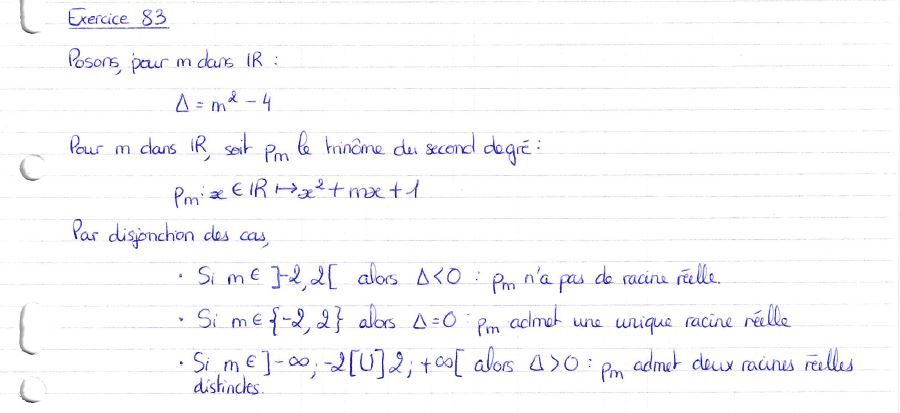 Exercice 83
Posons, pour m dans ℝ :
Δ = m² - 4
Pour m dans ℝ, soit pₘ le trinôme du second degré :
pₘ : x ∈ ℝ ↦ x² + mx + 1
Par disjonction des cas,
• Si m ∈ ]-2, 2[ alors Δ < 0 : pₘ n'a pas de racine réelle.
• Si m ∈ {-2, 2} alors Δ = 0 : pₘ admet une unique racine réelle
• Si m ∈ ]-∞; -2[ U ]2; +∞[ alors Δ > 0 : pₘ admet deux racines réelles
distinctes.